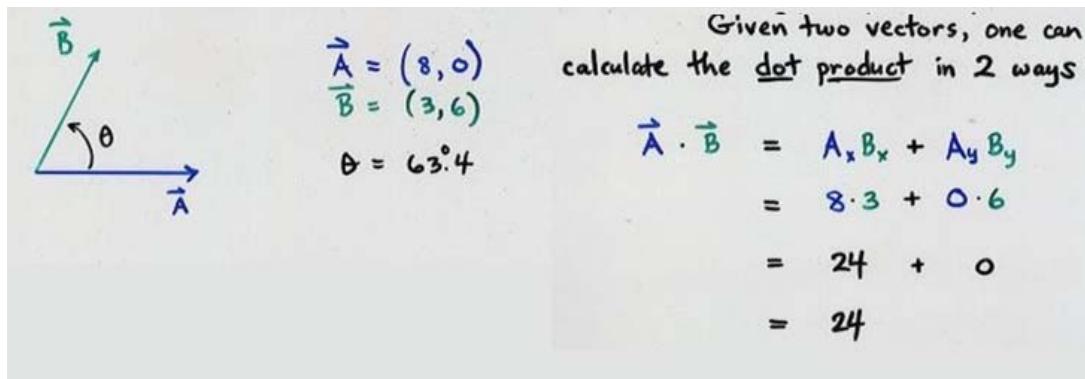 B⃗
θ
A⃗
A⃗ = (8, 0)
B⃗ = (3, 6)
θ = 63°.4
Given two vectors, one can
calculate the dot product in 2 ways
A⃗ · B⃗ = AₓBₓ + A_y B_y
= 8·3 + 0·6
= 24 + 0
= 24